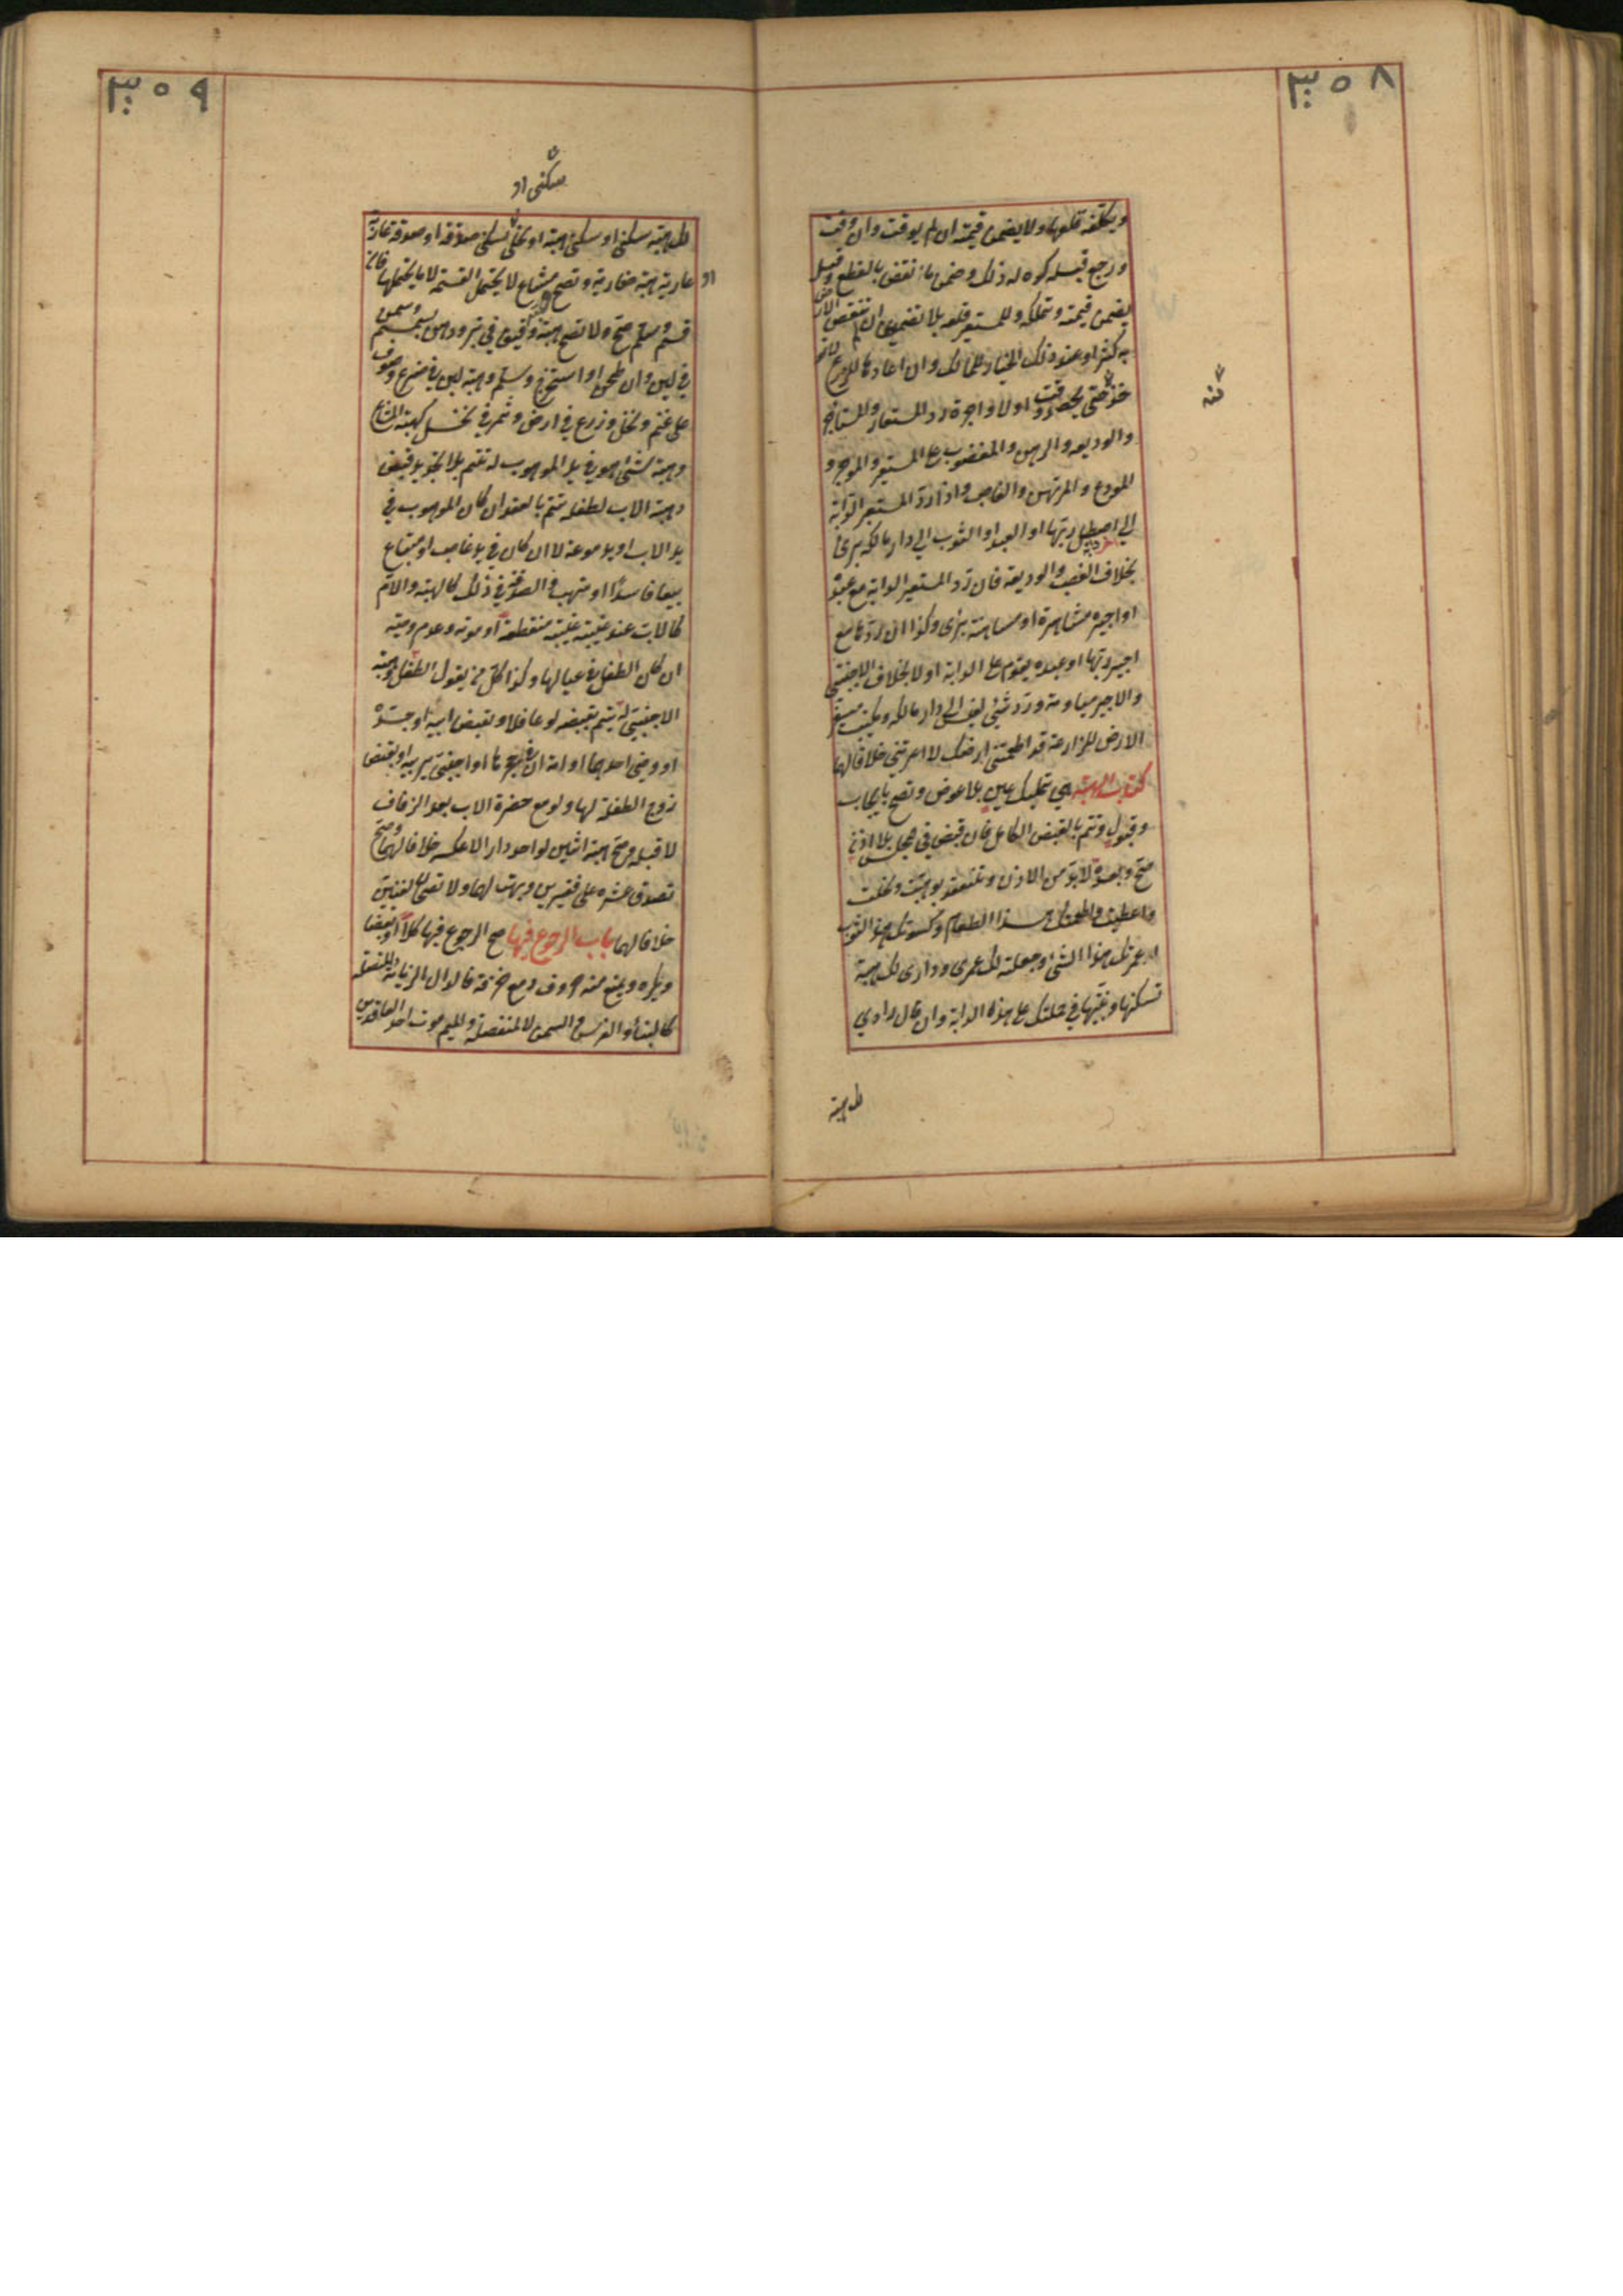 ٣٥٨
ويكلفه قلعهما ولا يضمن قيمته ان لم يوقت وان وقت
ورجع قبله كره له ذلك وضمن ما نقص بالقلع وقيل
يضمن قيمته ويملكه وللمستعير قلعه بلا تضمين ان لم تنقص الارض
به كثيرا وعند ذلك الخيار للمالك وان اعارها للزرع لا
تؤخذ حتى يحصد وقت اولا واجرة رد المستعار والمستاجر
والوديعه والرهن والمغصوب على المستعير والموجر و
المودع والمرتهن والغاصب واذا رد المستعير الدابة
الى اصطبل ربها او العبد او الثوب الى دار مالكه برئ
بخلاف الغصب والوديعة فان رد المستعير الدابة مع عبده
او اجيره مشاهرة او مسانهة برئ وكذا ان ردها مع
اجير ربها او عبده يقوم على الدابة اولا بخلاف الاجنبي
والاجير مياومة ورد شيئ نفيس الى دار مالكه ويكتب مستعير
الارض للزراعة قد اطعمتني ارضك لا اعرتني خلافا لهما
كتاب الهبة هي تمليك عين بلا عوض وتصح بايجاب
وقبول وتتم بالقبض الكامل فان قبض في مجلس بلا اذن
صح وبعده لا بد من الاذن وتنعقد بوهبت ونحلت
واعطيت واطعمتك هذا الطعام وكسوتك هذا الثوب
واعمرتك هذا الشئ او جعلته لك عمرى ودارى لك هبة
تسكنها وبنيتها في حملتك على هذه الدابة وان قال دارى
لك هبة
٣٥٩
سكنى او
لك هبة سكنى او سكنى هبة او نحلى سكنى صدقة او صدقة عارية
او
عارية هبة فعارية وتصح مشاع لا يحتمل القسمة لا ما يحتملها فان
قسم وسلم صح ولا تصح هبة دقيق في بر ودهن سمسم وسمن
في لبن وان طحن او استخرج وسلم وهبة لبن في ضرع وصوف
على غنم ونخل وزرع في ارض وثمر في نخل كهبة المشاع
وهبة شئ هو في يد الموهوب له تتم بلا تجديد قبض
وهبة الاب لطفله تتم بالعقد ان كان الموهوب في
يد الاب او يد مودعه لا ان كان في يد غاصب او مبتاع
بيعا فاسدا او متهب والصدقة في ذلك كالهبة والام
كالاب عند غيبته غيبة منقطعة او موته وعدم وصيه
ان كان الطفل في عيالها وكذا كل من يعول الطفل وهبة
الاجنبي له تتم بقبضه لو عاقلا وبقبض ابيه او جده
او وصى احدهما او امه ان في حجرها او اجنبي يربيه او بقبض
زوج الطفلة لها ولو مع حضرة الاب بعد الزفاف
لا قبله وصح هبة اثنين لواحد دارا لا عكسه خلافا لهما وصح
تصدق عشره على فقيرين وهبتها لهما ولا تصح لغنيين
خلافا لهما باب الرجوع فيها صح الرجوع فيها كلا او بعضا
ويكره ويمنع منه حروف دمع خزقة فالدال الزيادة المتصلة
كالبناء والغرس والسمن لا المنفصلة والميم موت احد العاقدين